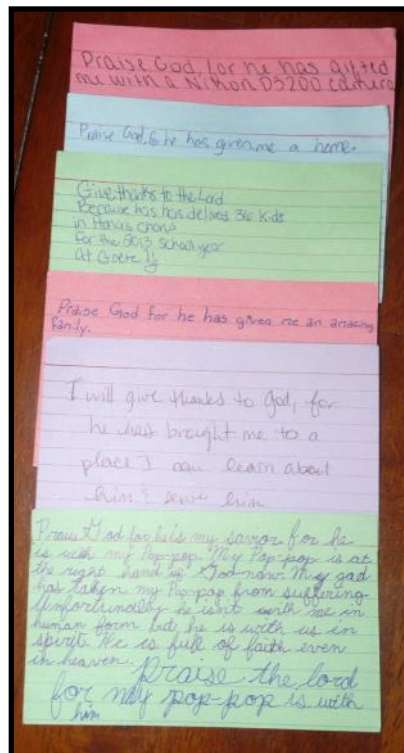 Praise God, for he has gifted
me with a Nikon D5200 camera
Praise God, for he has given me a home.
Give thanks to the Lord
Because has has delived 36 kids
in Honors chorus
For the 2013 school year
at Goete
Praise God for he has given me an amazing
family.
I will give thanks to God, for
he has brought me to a
place I can learn about
him & serve him
Praise God for he's my savior for he
is with my Pop-pop. My Pop-pop is at
the right hand of God now. My god
has taken my Pop-pop from suffering
Unfortunadly he isnt with me in
human form but he is with us in
spirit. He is full of faith even
in heaven.
praise the lord
for my pop-pop is with
him